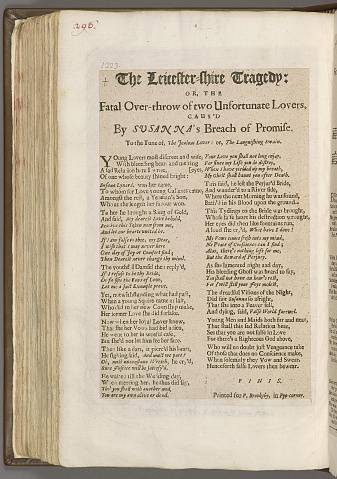 296.
1223.
The Leicester-shire Tragedy:
OR, THE
Fatal Over-throw of two Unfortunate Lovers,
CAUS'D
By SUSANNA's Breach of Promise.
To the Tune of, The Jealous Lover: or, The Languishing Swain.
Young Lovers most different and wise,
With bleeding heart and melting [eyes,
A sad Relation here I write,
Of one whose beauty shined bright:
Susan Lynard was her name,
To whom for Love young Gallants came,
Amongst the rest, a Yeoman's Son,
Who at the length her favour won.
To her he brought a Ring of Gold,
And said, My dearest Love behold,
Receive this Token now from me,
And let our hearts united be.
If I am false to thee, my Dear,
I wish that I may never here
One day of Joy or Comfort find;
Then Dearest never change thy mind.
The youthful Damsel then reply'd,
If I refuse to be thy Bride,
Or forsake this Knot of Love,
Let me a just Example prove.
Yet, notwithstanding what had past,
When a young Squire came at last,
Who did to her new Courtship make,
Her former Love she did forsake.
Now when her loyal Lover knew,
That she her Vows had bid adieu,
He went to her in woful case,
But she'd not let him see her face.
That like a dart, it pierc'd his heart,
He sighing said, And must we part?
Oh, most unconstant Wretch, he cry'd,
Sure Justice will be satisfy'd.
He waited till the Wedding day,
When meeting her, he thus did say,
Tho' you shall wed with another and,
You are my own alive or dead.
Your Love you shall not long enjoy,
For sure my Life you do destroy,
When I have yielded up my breath,
My Ghost shall haunt you after Death.
This said, he left the Perjur'd Bride,
And wander'd to a River side,
Where the next Morning he was found,
Bath'd in his Blood upon the ground.
This Tydings to the Bride was brought,
Which sure her senses did distraught,
Her eyes did then like fountains run,
Aloud she cry'd, What have I done!
My Vows come fresh into my mind,
No Peace of Conscience can I find;
Alas, there's nothing left for me,
But the Reward of Perjury.
As she lamented night and day,
His bleeding Ghost was heard to say,
For I will have your Life indeed.
The dreadful Visions of the Night,
Did fair Susanna so affright,
That she into a Feaver fell,
And dying, said, False World farewel.
Young Men and Maids both far and near,
That shall this sad Relation hear,
See that you are not false in Love
For there's a Righteous God above,
Who will no doubt just Vengeance take
Of those that does no Conscience make,
When solemnly they Vow and Swear:
Henceforth false Lovers then beware.
FINIS.
Printed for P. Brooksby, in Pye-corner.